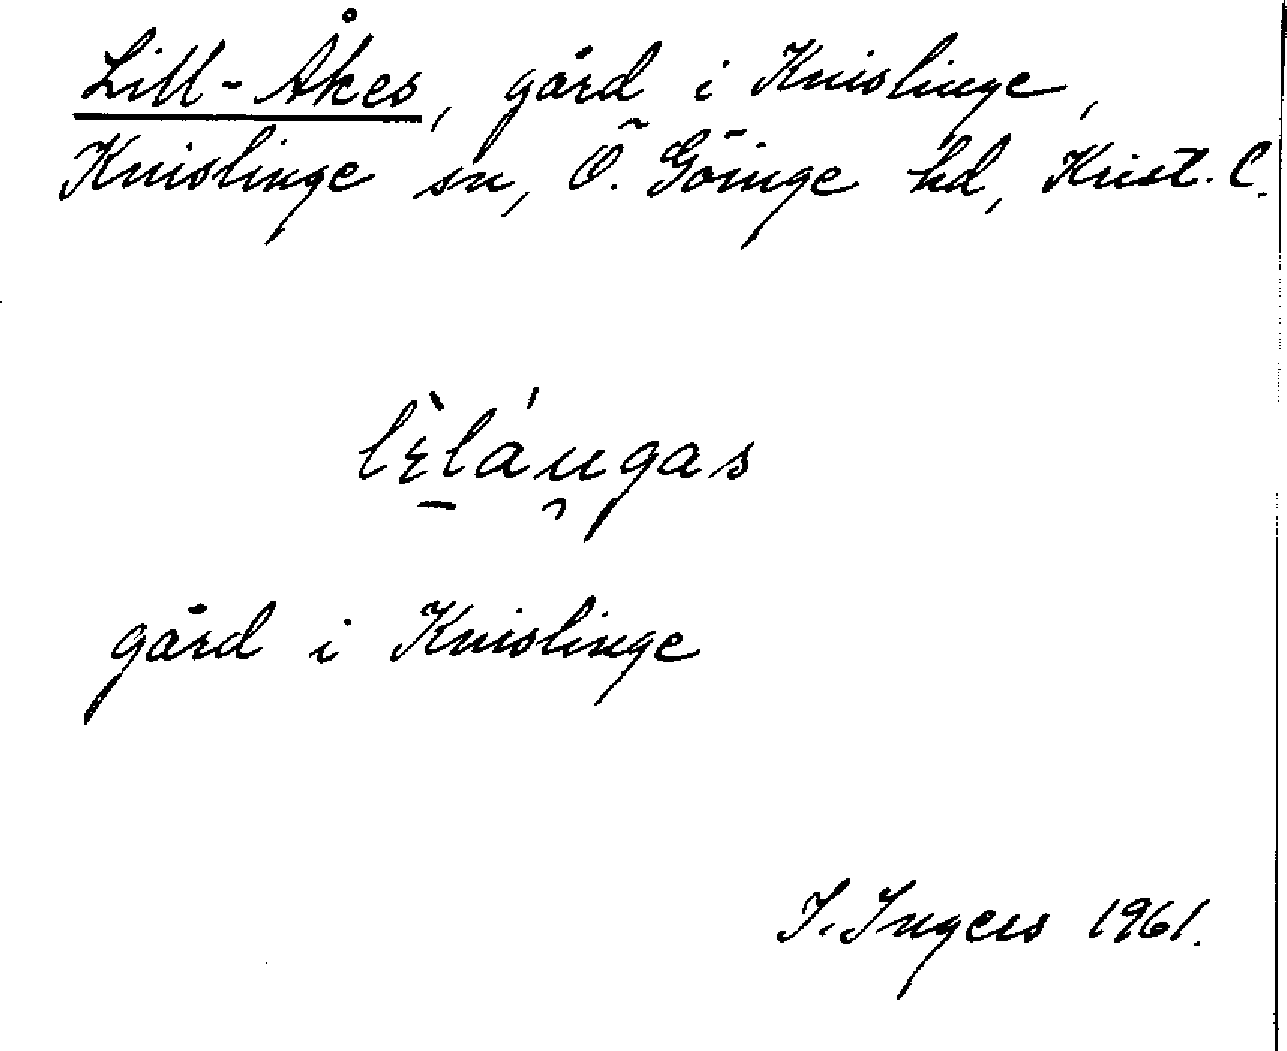 Lill-Åkes, gård i Knislinge,
Knislinge sn, Ö. Göinge hd, Krist. l.
lɛ̀lá́u̯gas
gård i Knislinge
I. Ingers 1961.